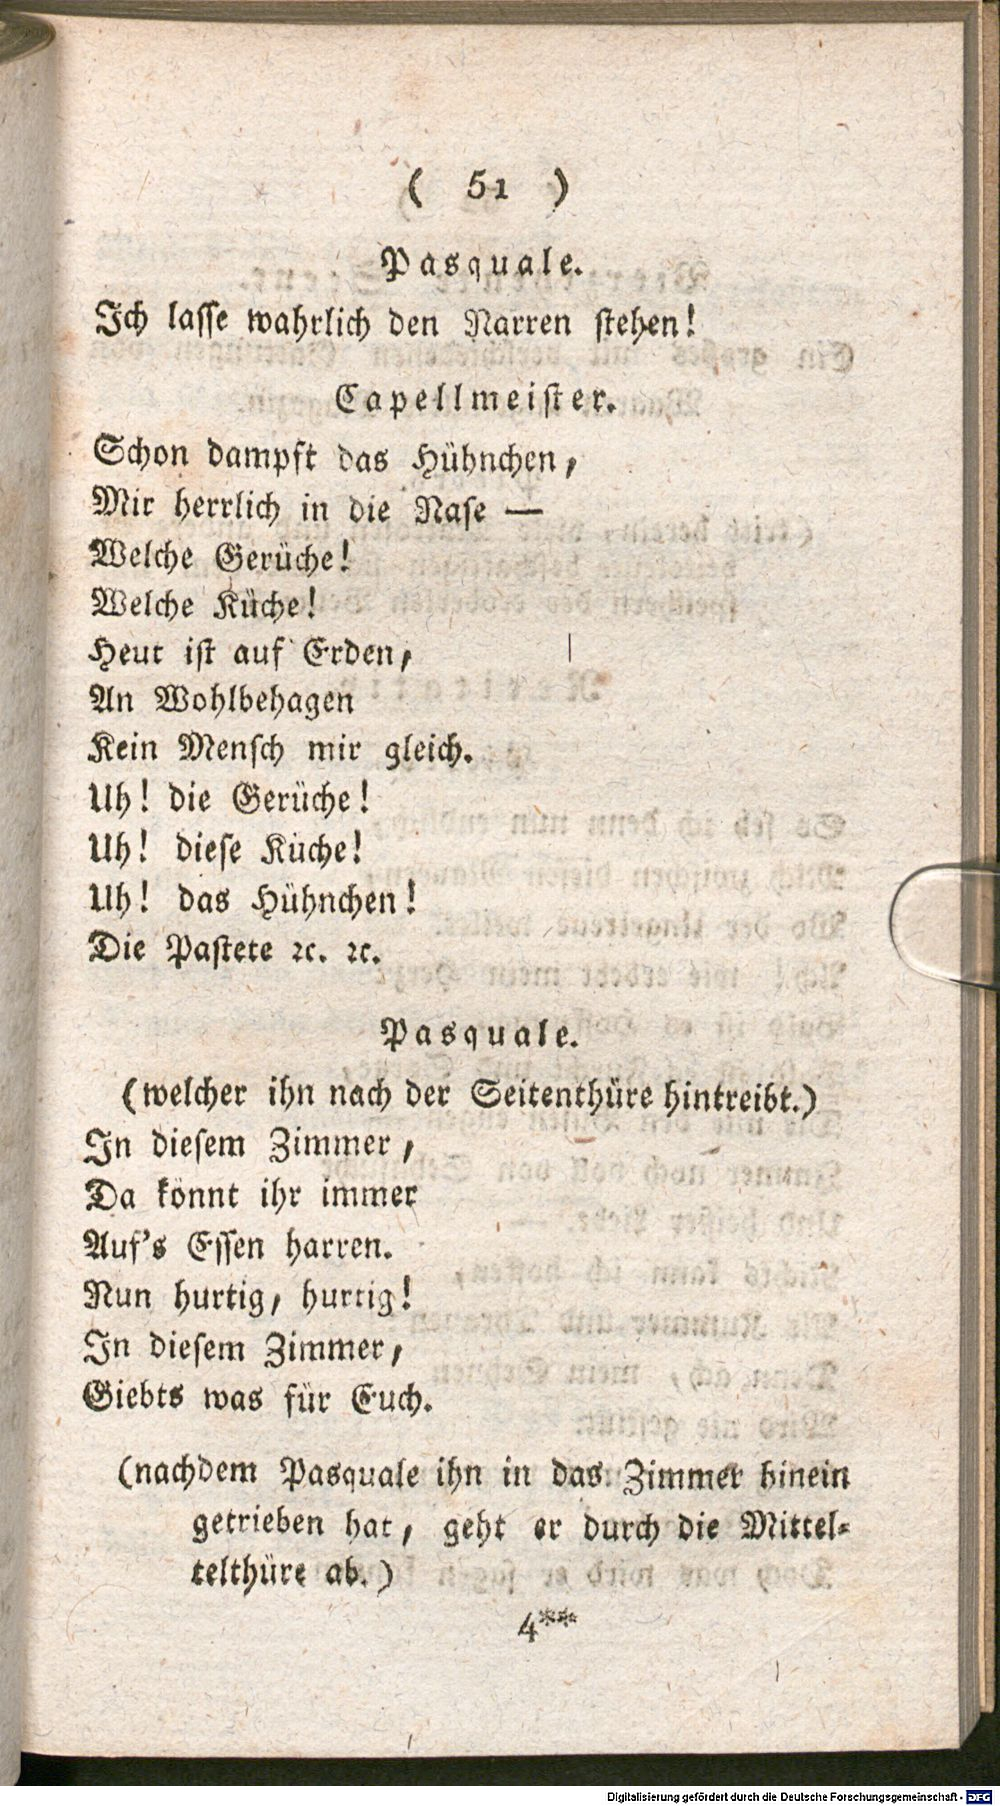 ( 51 )
Pasquale.
Ich lasse wahrlich den Narren stehen!
Capellmeister.
Schon dampft das Hühnchen,
Mir herrlich in die Nase —
Welche Gerüche!
Welche Küche!
Heut ist auf Erden,
An Wohlbehagen
Kein Mensch mir gleich.
Uh! die Gerüche!
Uh! diese Küche!
Uh! das Hühnchen!
Die Pastete ꝛc. ꝛc.
Pasquale.
(welcher ihn nach der Seitenthüre hintreibt.)
In diesem Zimmer,
Da könnt ihr immer
Auf's Essen harren.
Nun hurtig, hurtig!
In diesem Zimmer,
Giebts was für Euch.
(nachdem Pasquale ihn in das Zimmer hinein
getrieben hat, geht er durch die Mittel-
telthüre ab.)
4***
Digitalisierung gefördert durch die Deutsche Forschungsgemeinschaft - DFG